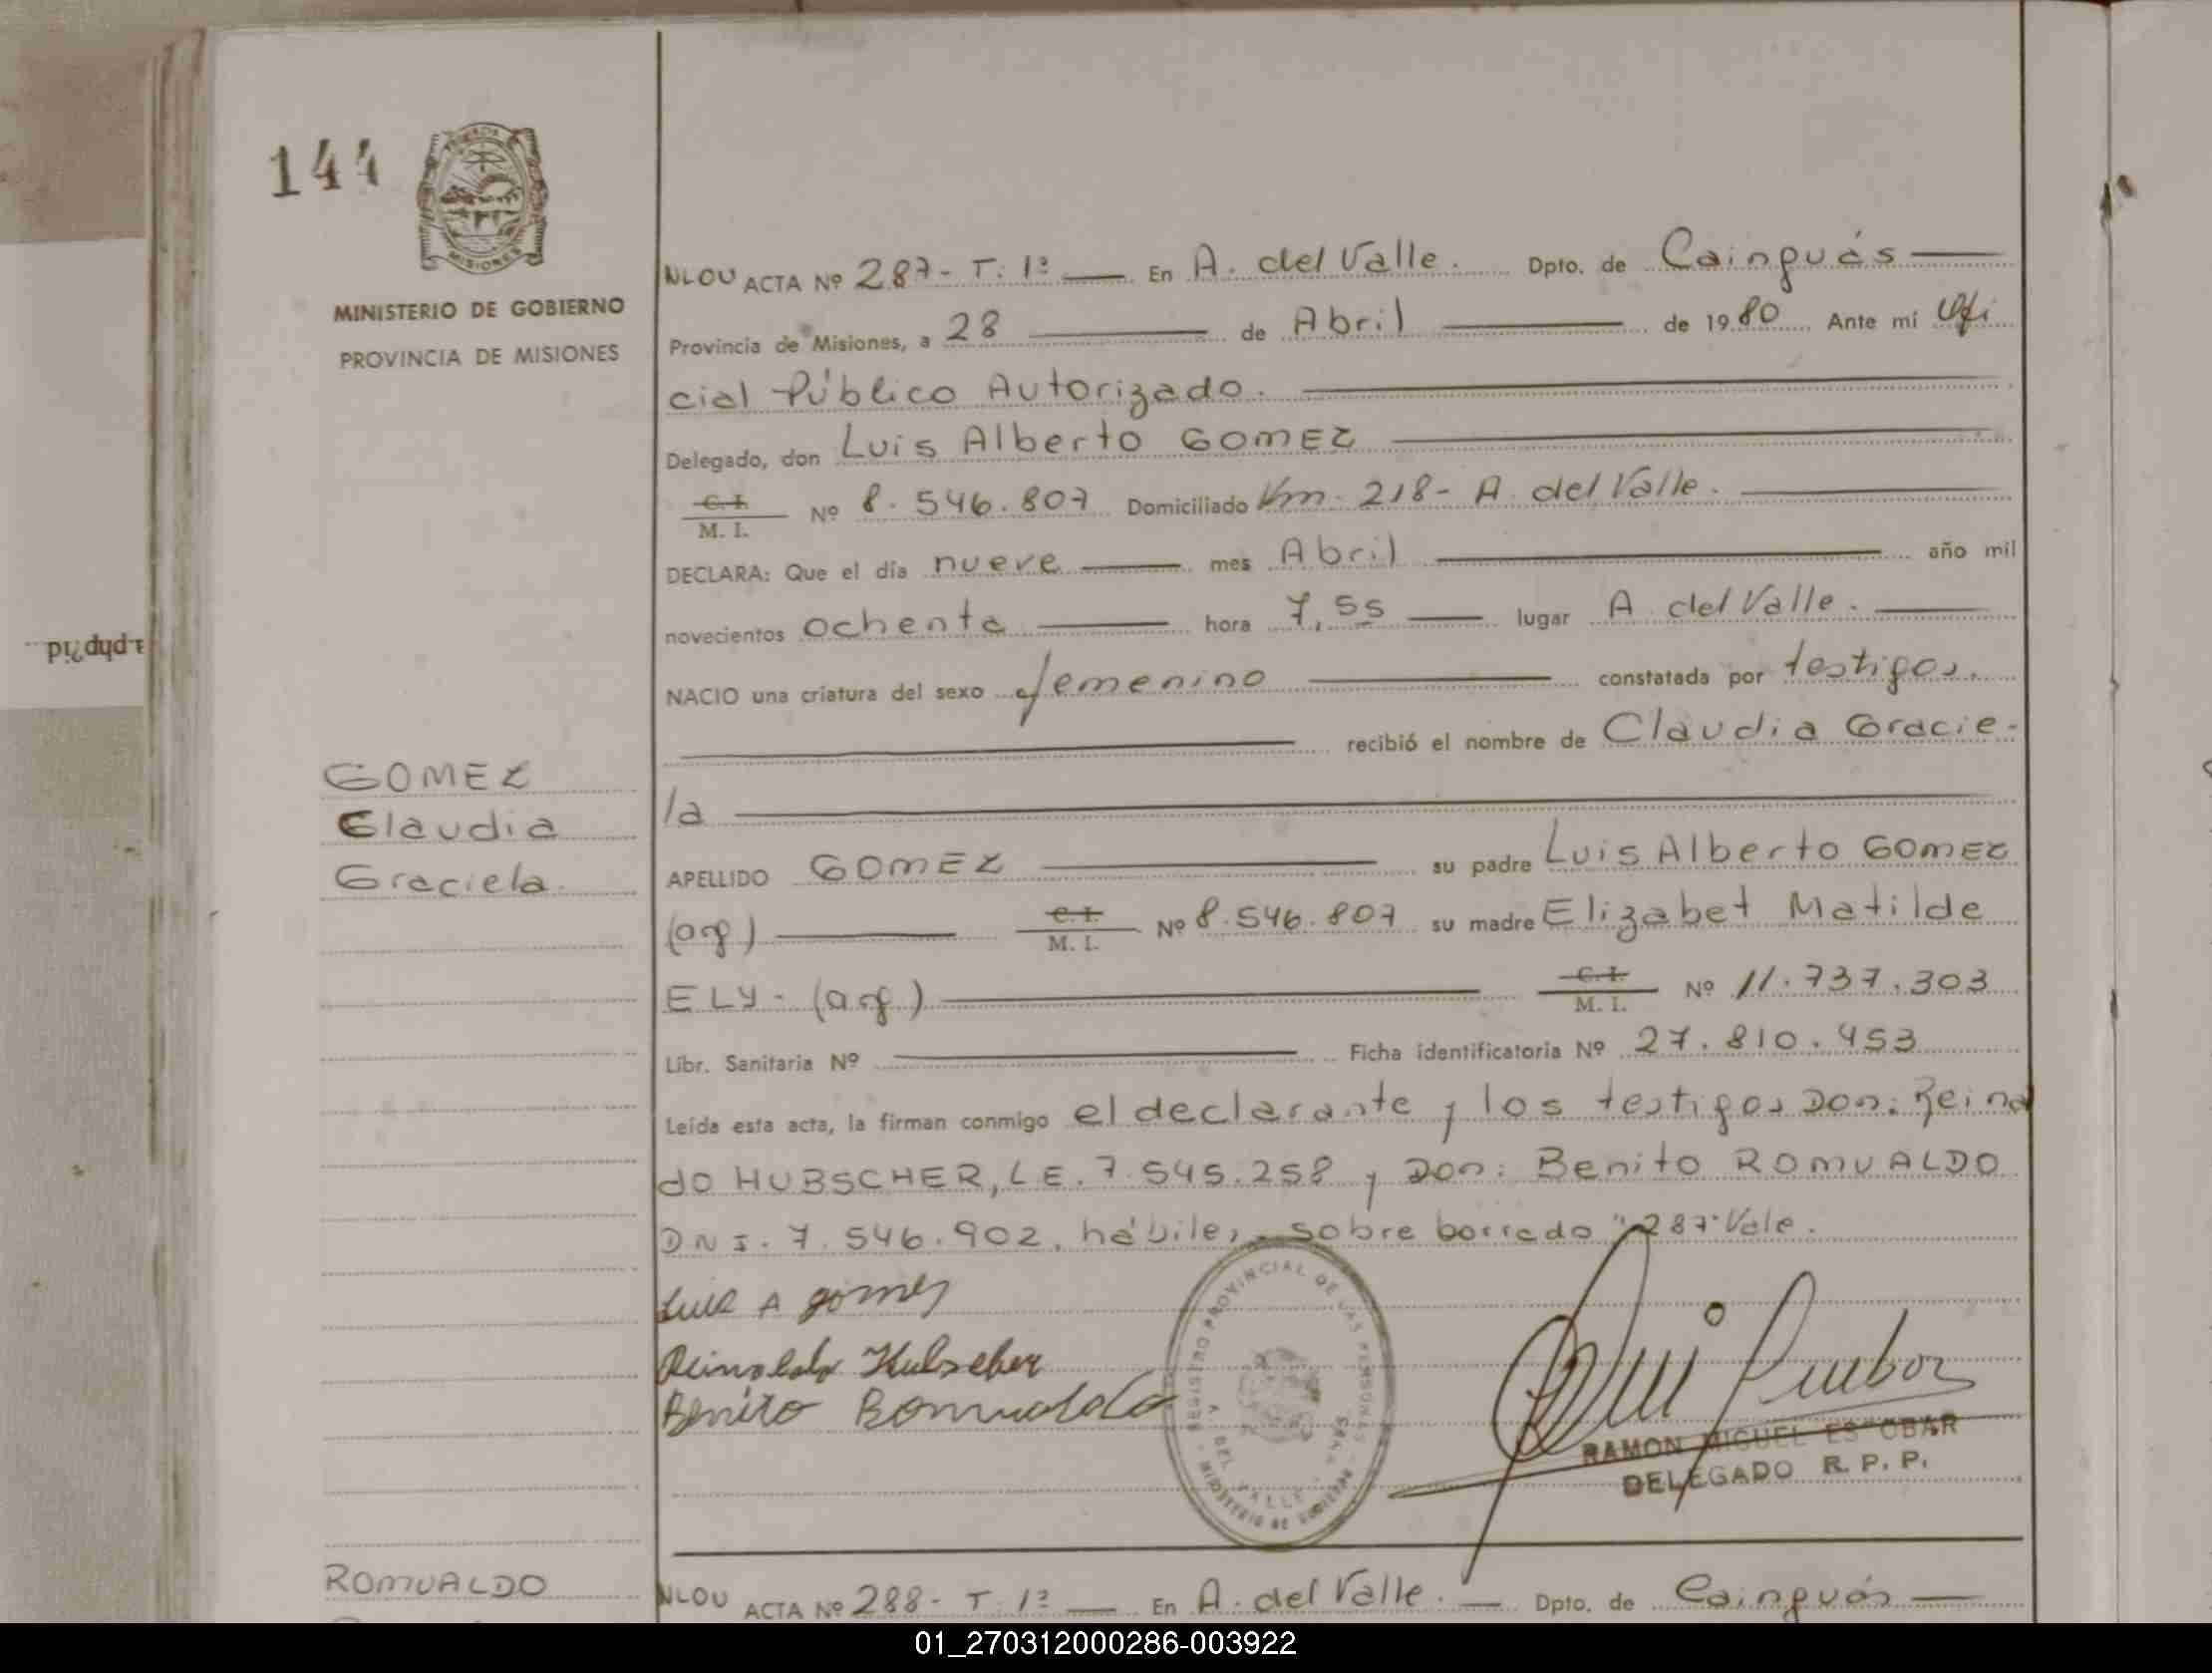 144
MISIONES
MINISTERIO DE GOBIERNO
PROVINCIA DE MISIONES
NLOU ACTA Nº 287- T. 1º En A. del Valle. Dpto. de Cainguás
Provincia de Misiones, a 28 de Abril de 1980 Ante mi Ofi
cial Público Autorizado.
Delegado, don Luis Alberto GOMEZ
C. I.
M. I. Nº 8.546.807 Domiciliado Km. 218- A. del Valle.
DECLARA: Que el día nueve mes Abril año mil
novecientos ochenta hora 7,55 lugar A. del Valle.
NACIO una criatura del sexo femenino constatada por testigos.
recibió el nombre de Claudia Gracie-
la
APELLIDO GOMEZ su padre Luis Alberto GOMEZ
(arg) C. I.
M. I. Nº 8.546.807 su madre Elizabet Matilde
ELY- (arg) C. I.
M. I. Nº 11.737.303
Libr. Sanitaria Nº Ficha identificatoria Nº 27.810.453
Leída esta acta, la firman conmigo el declarante y los testigos Don: Reinal
do HUBSCHER, L E. 7.545.258 y Don: Benito ROMUALDO
DNI. 7.546.902, hábiles, sobre borrado "287" Vale.
GOMEZ
Claudia
Graciela.
Luis A gomes
Reinaldo Hubscher
Benito Romualdo
REGISTRO PROVINCIAL DE LAS PERSONAS
MINISTERIO DE GOBIERNO
A. DEL VALLE
RAMON MIGUEL ESCOBAR
DELEGADO R. P. P.
ROMUALDO
NLOU ACTA Nº 288- T. 1º En A. del Valle. Dpto. de Cainguás
a.php?id
01_270312000286-003922